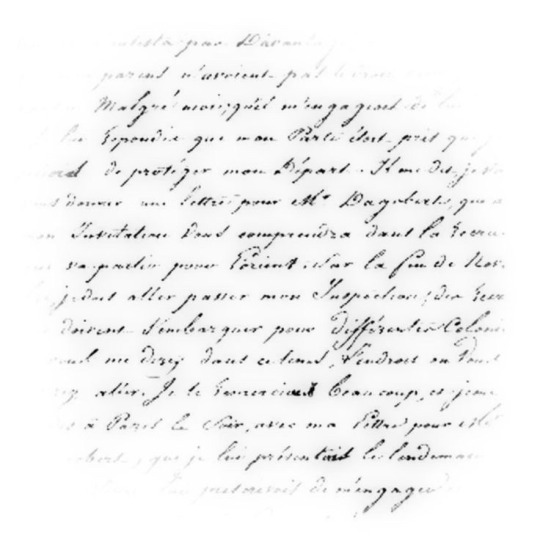 par D'avan
parens n'avoient pas
Malgré moi, qu'il m'engageoit de
lui Repondis que mon Parti étoit pris que
de protéger mon Départ. Il me dit, je
donner une Lettre pour Mr Dagobert, qui
Invitation Vous comprendra dans la Recru
va partir pour Lorient. Sur la fin de Nov.
je dois aller passer mon Inspection; des Recr
doivent s'embarquer pour différentes Coloni
me direz dans ce tems, l'endroit ou Vous
aller. Je le Remerciai beaucoup, et je me
à Paris le Soir, avec ma Lettre pour Mr
que je lui présentai le lendemai
de m'engager